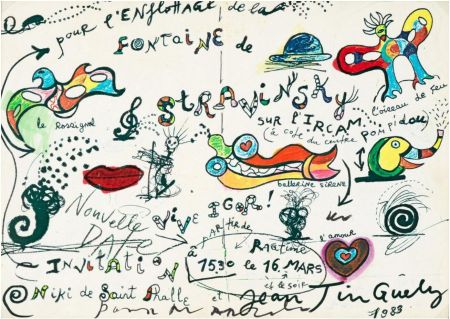 pour l'ENFLOTTAGE de la
FONTAINE de
STRAVINSKY
SUR L'IRCAM
(à coté du centre POMPIDOU
l'oiseau de feu
le Rossignol
ballerine SIRENE
VIVE IGOR!
Nouvelle
DATE
à PARTIR DE
RAGTIME
l'amour
INVITATION
à 1530 le 16 MARS
et le soir
Niki de Saint Phalle et Jean Tinguely
1983